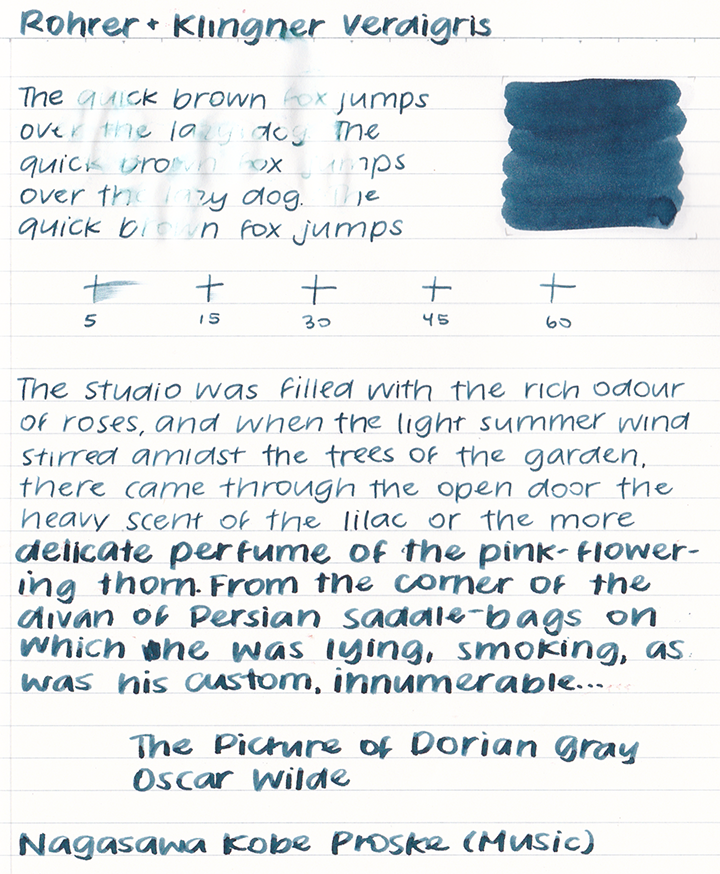 Rohrer + Klingner Verdigris
The quick brown fox jumps
over the lazy dog. The
quick brown fox jumps
over the lazy dog. The
quick brown fox jumps
5 15 30 45 60
The studio was filled with the rich odour
of roses, and when the light summer wind
stirred amidst the trees of the garden,
there came through the open door the
heavy scent of the lilac or the more
delicate perfume of the pink-flower-
ing thorn. From the corner of the
divan of Persian saddle-bags on
which he was lying, smoking, as
was his custom, innumerable...
The Picture of Dorian Gray
Oscar Wilde
Nagasawa Kobe Proske (Music)